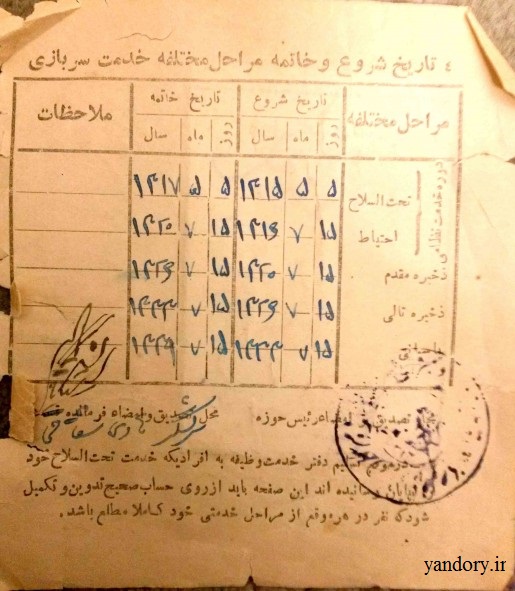 ٤ تاریخ شروع و خاتمه مراحل مختلفه خدمت سربازی
مراحل مختلفه تاریخ شروع تاریخ خاتمه ملاحظات
روز ماه سال روز ماه سال
دوره خدمت نظامی
تحت السلاح ۵ ۵ ۱۳۱۵ ۵ ۵ ۱۳۱۷
احتیاط ۱۵ ۷ ۱۵ ۷ ۱۳۲۰
ذخیره مقدم ۱۵ ۷ ۱۳۲۰ ۱۵ ۷ ۱۳۲۶
ذخیره تالی ۱۵ ۷ ۱۳۲۶ ۱۵ ۷
۱۵ ۷ ۱۵ ۷
تصدیق و امضاء رئیس حوزه محل تصدیق و امضاء فرمانده
درموقع تسلیم دفتر خدمت وظیفه به افرادیکه خدمت تحت السلاح خود
رسانیده اند این صفحه باید از روی حساب صحیح تدوین و تکمیل
شود که نفر در هر موقع از مراحل خدمتی خود کاملا مطلع باشد.
yandory.ir